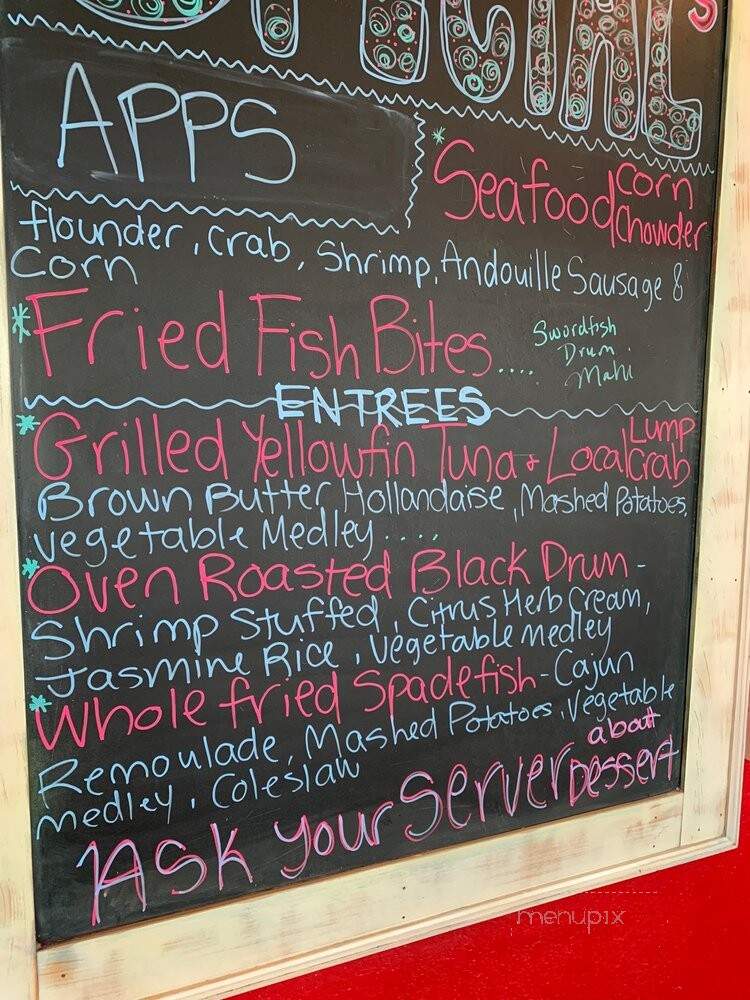 SPECIALS
APPS
* Seafood Corn Chowder
flounder, crab, Shrimp, Andouille Sausage &
Corn
* Fried Fish Bites....
Swordfish
Drum
Mahi
ENTREES
* Grilled Yellowfin Tuna + Local Lump Crab
Brown Butter Hollandaise, Mashed Potatoes,
vegetable Medley....
* Oven Roasted Black Drum -
Shrimp Stuffed, Citrus Herb Cream,
Jasmine Rice, Vegetable medley
* Whole fried Spadefish - Cajun
Remoulade, Mashed Potatoes, Vegetable
medley, Coleslaw
Ask your Server about Dessert
menupix